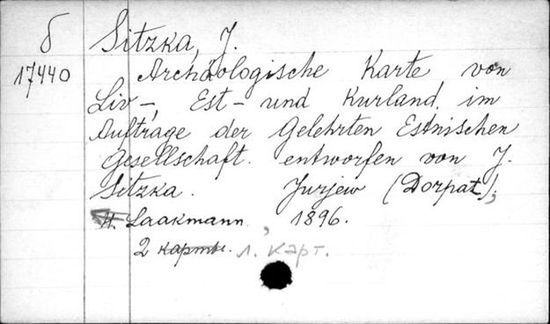 б Sitzka, J.
17440 Archäologische Karte von
Liv-, Est- und Kurland, im
Auftrage der Gelehrten Estnischen
Gesellschaft. entworfen von J.
Sitzka. Jurjew (Dorpat),
H. Laakmann, 1896.
2 карты. л. карт.